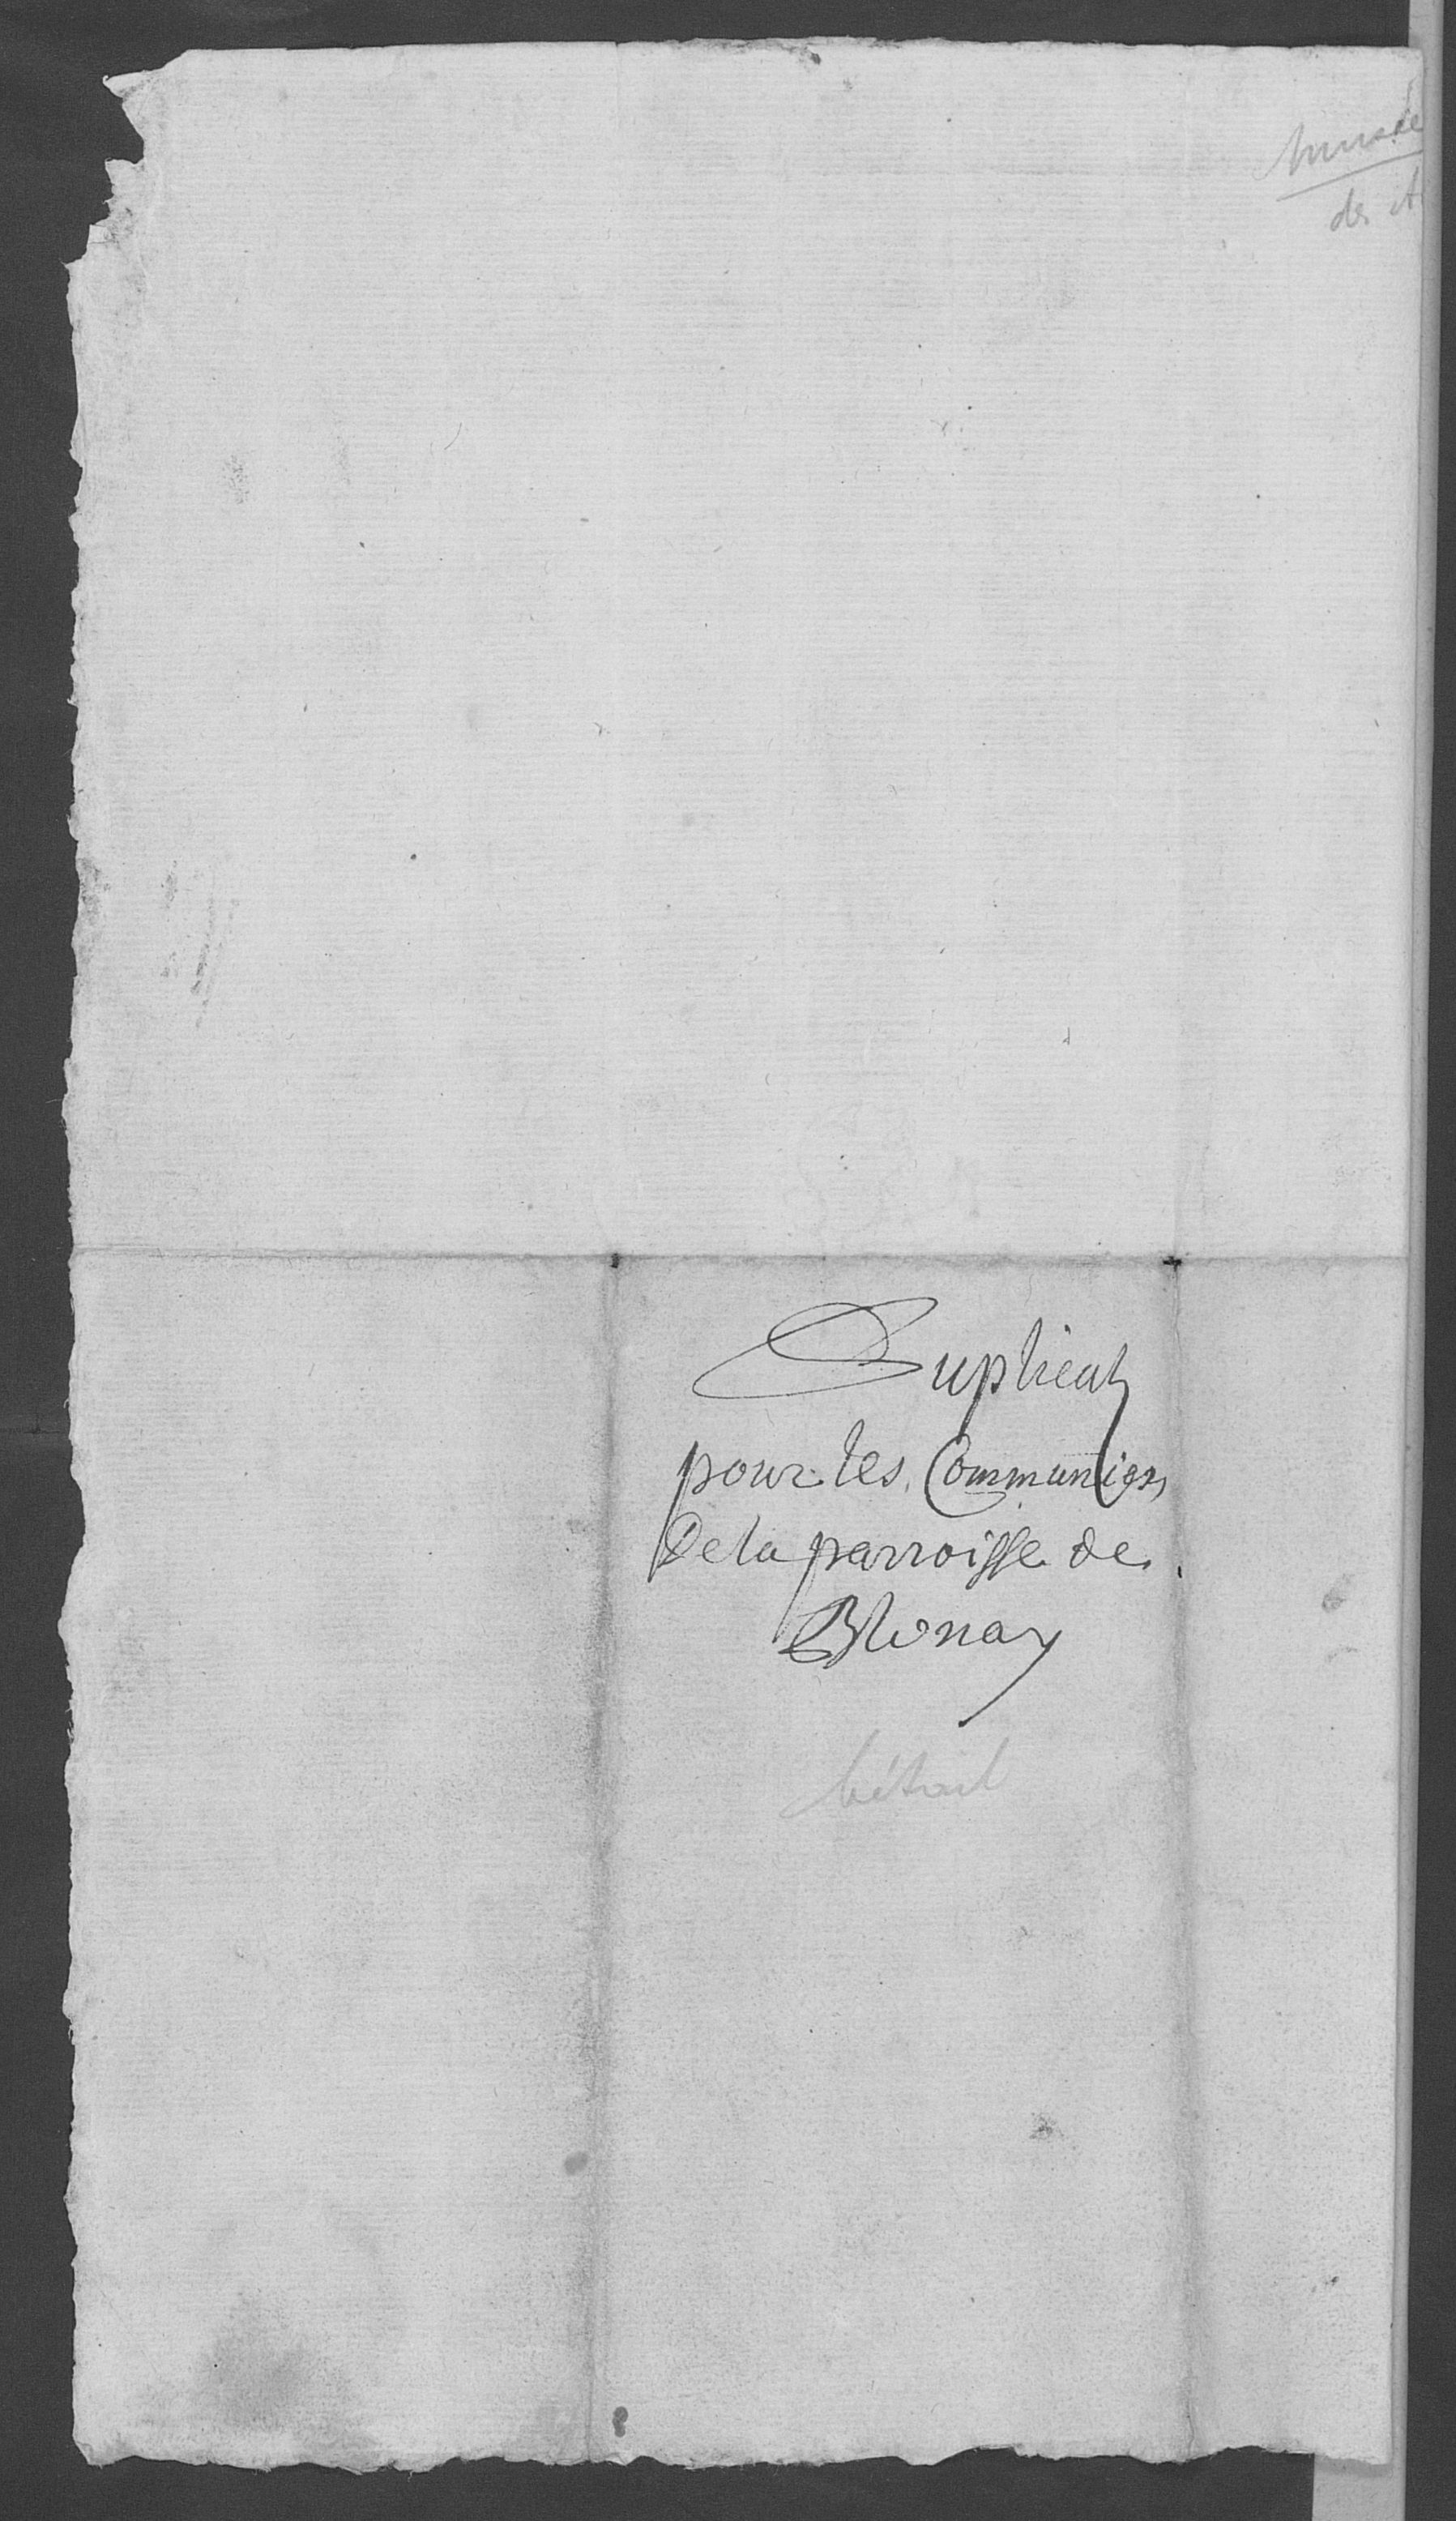 Musée
des A
Duplicat
pour les Communiers
De la parroisse de
Blonay
bétail